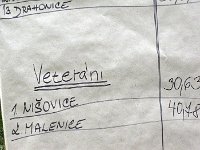 13 DRAHONICE
Veteráni
1 NIŠOVICE 30,63
2 MALENICE 40,78